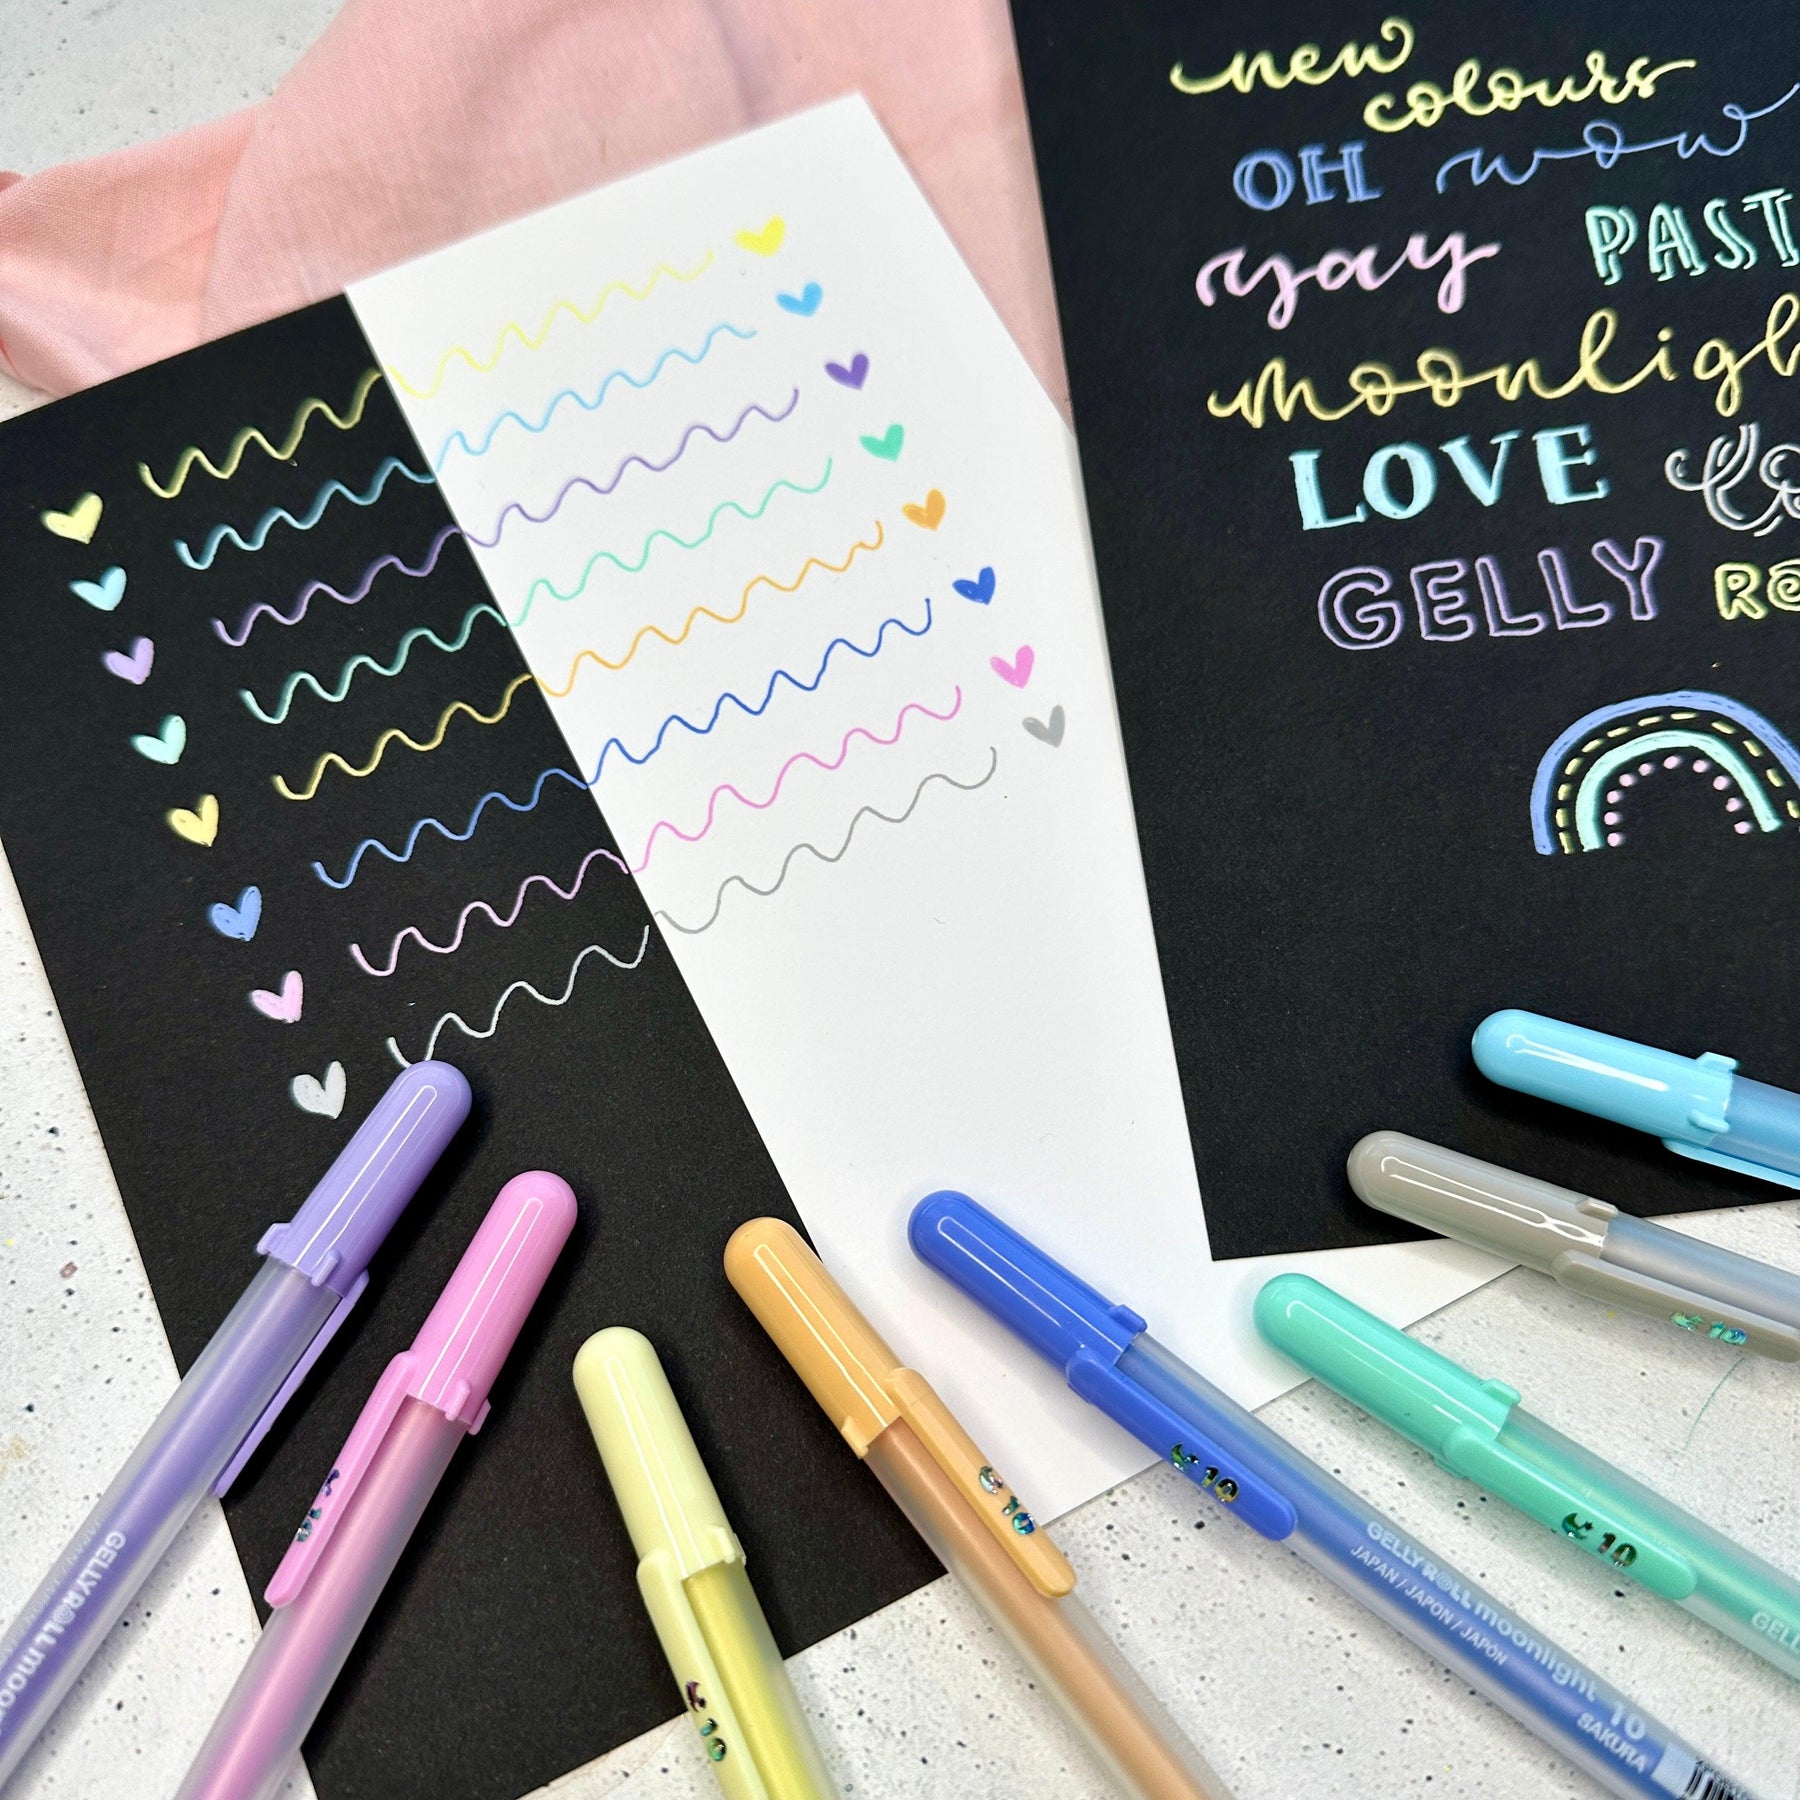 new
colours
OH wow
yay PAST
moonligh
LOVE
GELLY RO
10
10
10
10
10
10
GELLY ROLL moon
GELLY ROLL moonlight 10
JAPAN / JAPON / JAPÓN
SAKURA
GELL